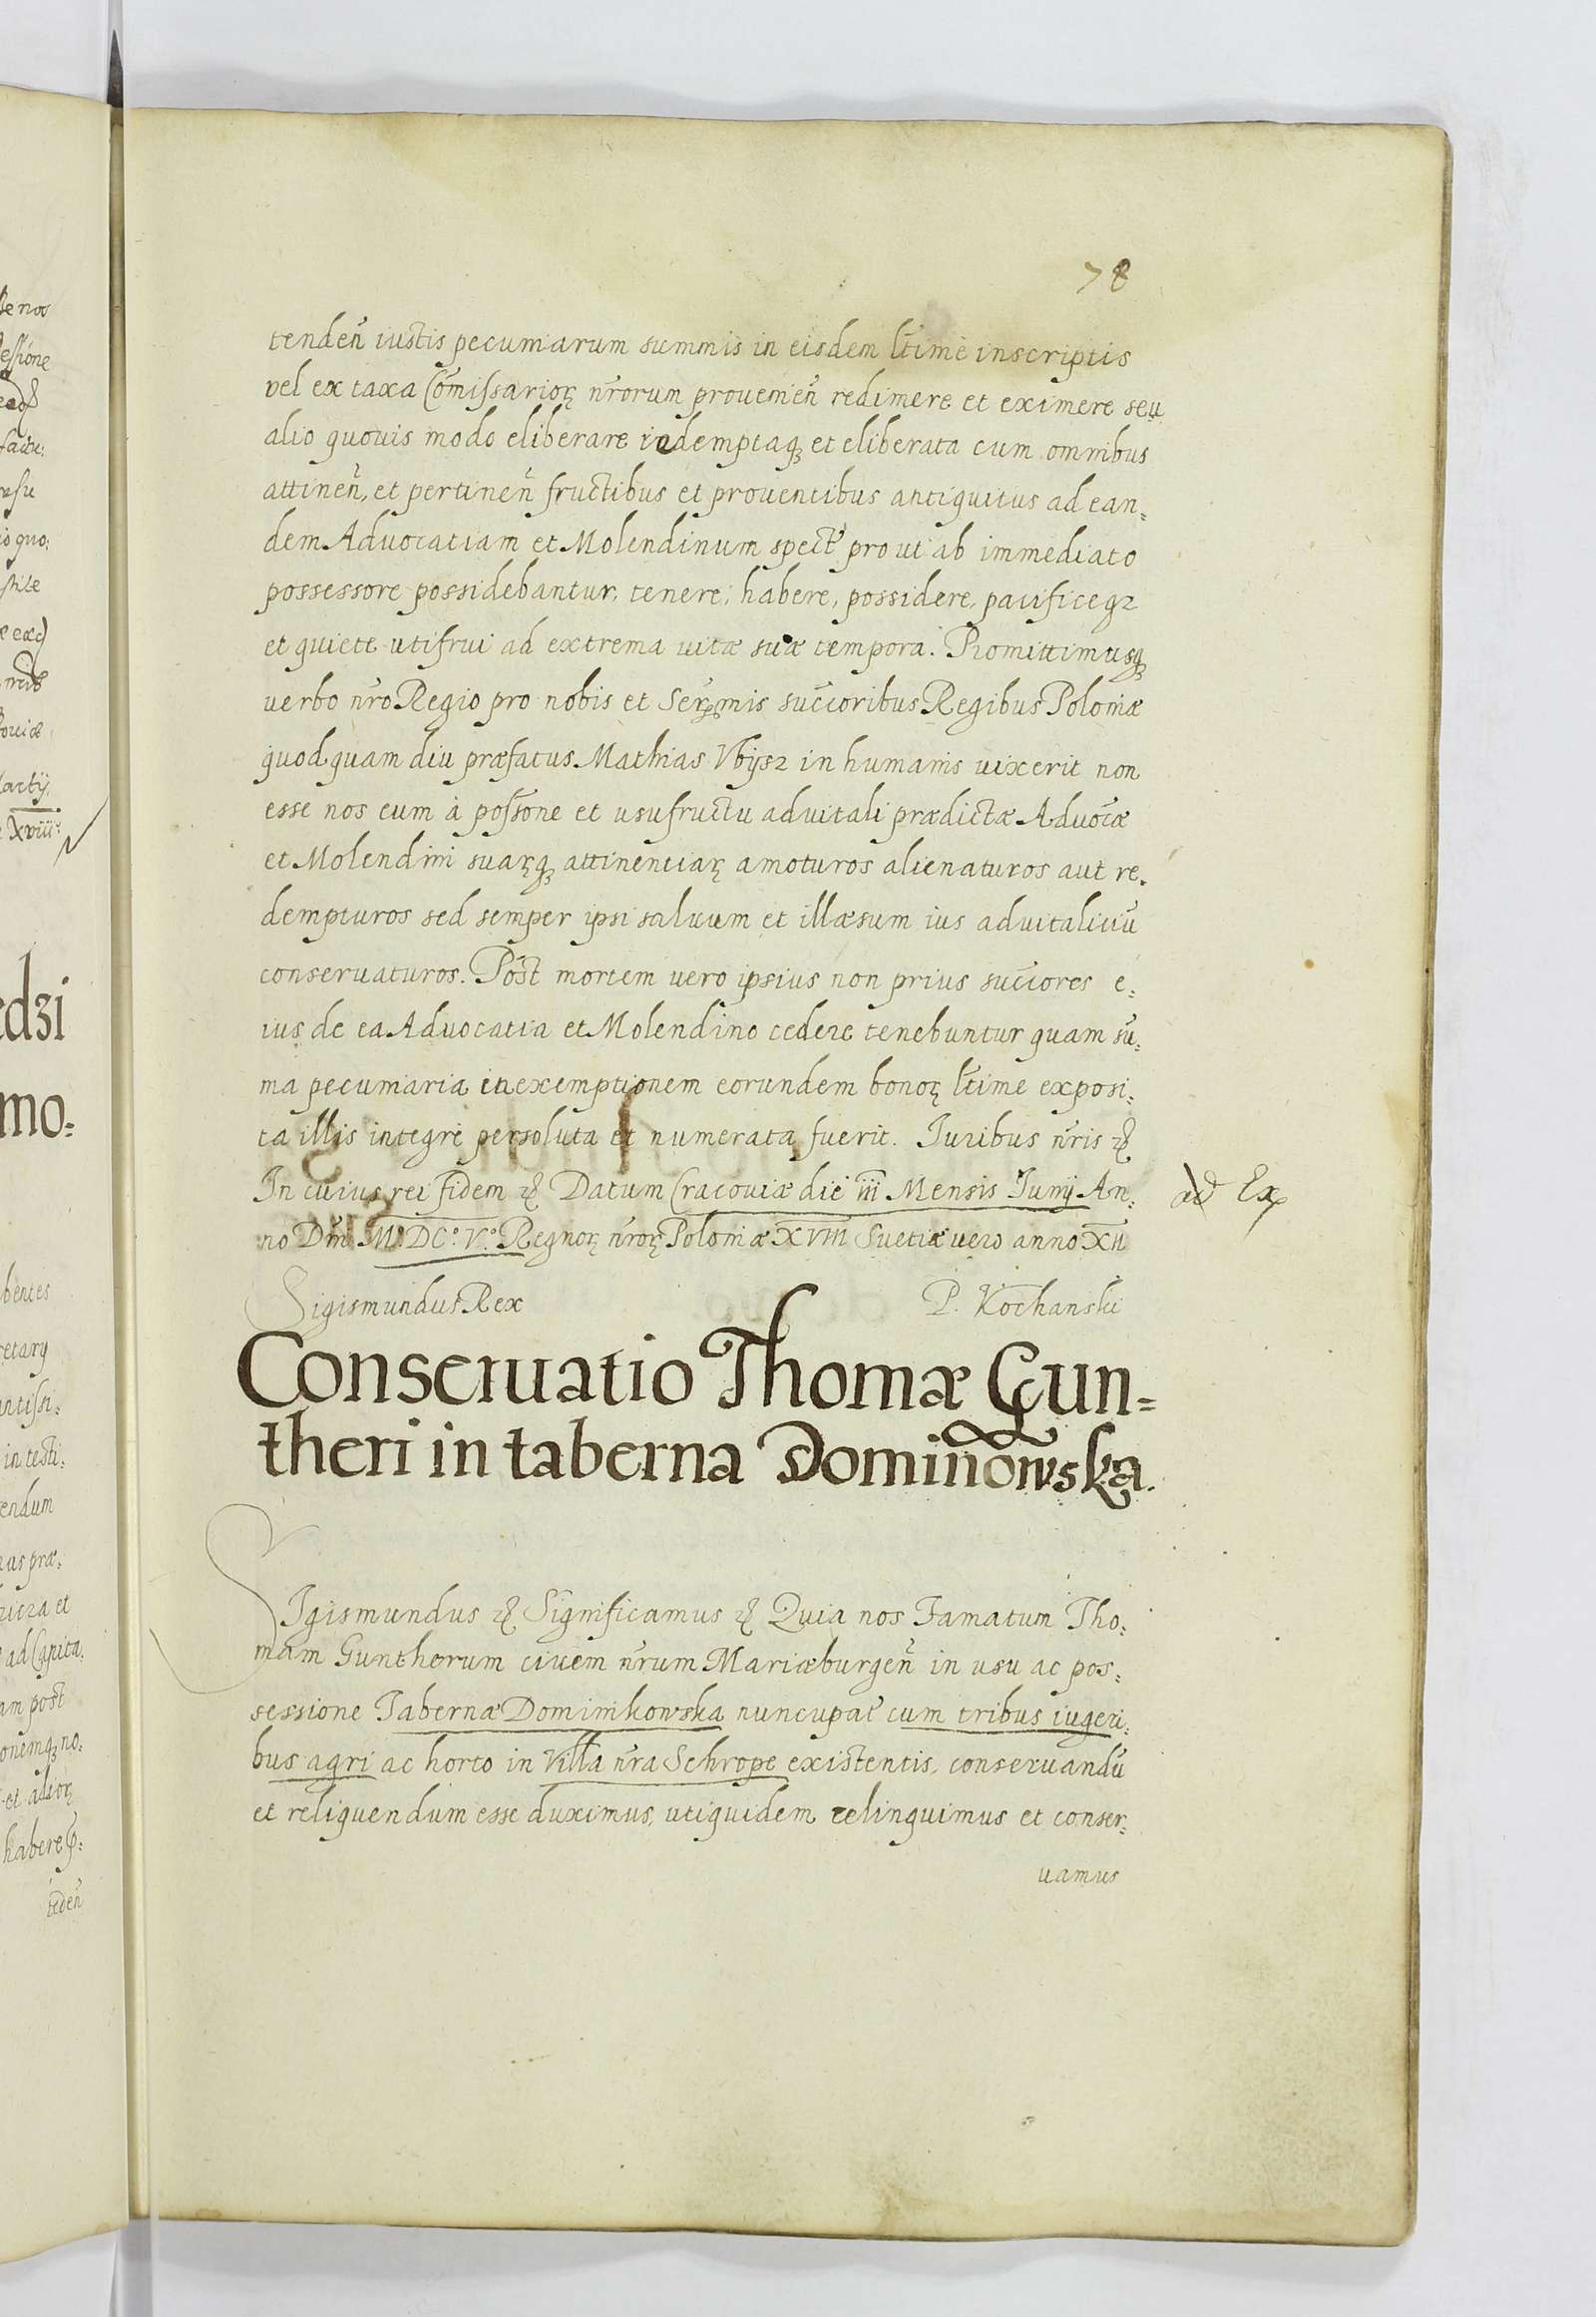 78
tendeñ iustis pecuniarum summis in eisdem l̃time inscriptis
vel ex taxa Com̃issarioꝝ nr̃orum prouenieñ redimere et eximere seu
alio quouis modo eliberare redemptaqꝫ et eliberata cum omnibus
attineñ, et pertineñ fructibus et prouentibus antiquitus ad ean=
dem Aduocatiam et Molendinum spect̃ pro ut ab immediato
possessore possidebantur, tenere, habere, possidere, pacificeqꝫ
et quiete utifrui ad extrema uitæ suæ tempora. Promittimusqꝫ
uerbo nr̃o Regio pro nobis et Serm̃is succ̃oribus Regibus Poloniæ
quod quam diu præfatus Mathias Vbysz in humanis uixerit non
esse nos eum à poss̃one et usufructu aduitali prædictæ Aduoc̃æ
et Molendini suarꝝqꝫ attinentiaꝝ amoturos alienaturos aut re=
dempturos sed semper ipsi saluum et illæsum ius aduitaliciũ
conseruaturos. Post mortem uero ipsius non prius succ̃ores e=
ius de ea Aduocatia et Molendino cedere tenebuntur quam sũ=
ma pecuniaria in exemptionem eorundem bonoꝝ l̃time exposi=
ta illis integre persoluta et numerata fuerit. Iuribus nr̃is ꝛc̃
In cuius rei fidem ꝛc̃ Datum Cracouiæ die iii Mensis Iunij An=
ad Ex
no Dn̄i M°. DC°. V°. Regnoꝝ nr̃oꝝ Poloniæ XVIII Suetiæ uero anno XII
Sigismundus Rex P. Kochanski
Conseruatio Thomæ Gun=
theri in taberna Domin̄owska.
SIgismundus ꝛc̃ Significamus ꝛc̃ Quia nos Famatum Tho=
mam Guntherum ciuem nr̃um Mariæburgeñ in usu ac pos=
sessione Tabernæ Dominikowska nuncupat̃ cum tribus iugeri=
bus agri ac horto in Villa nr̃a Schrope existentis, conseruandũ
et reliquendum esse duximus, utiquidem relinquimus et conser=
uamus